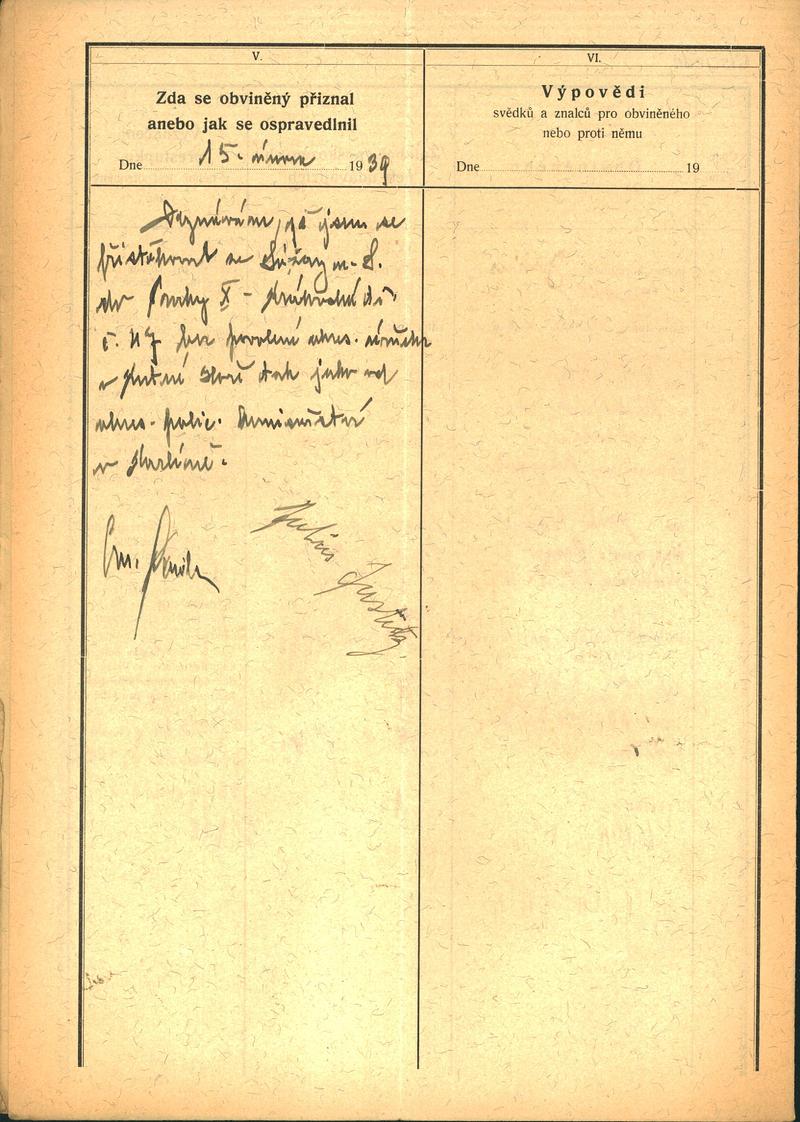 V.
Zda se obviněný přiznal
anebo jak se ospravedlnil
Dne 15. února 1939
VI.
Výpovědi
svědků a znalců pro obviněného
nebo proti němu
Dne 19
Doznávám, že jsem se
přistěhoval ze Sázavy n. S.
do Prahy X -
č. bez povolení okres. úřadu
v Kutné Hoře tak jako od
okres. polic. komisařství
v Karlíně.
Julius